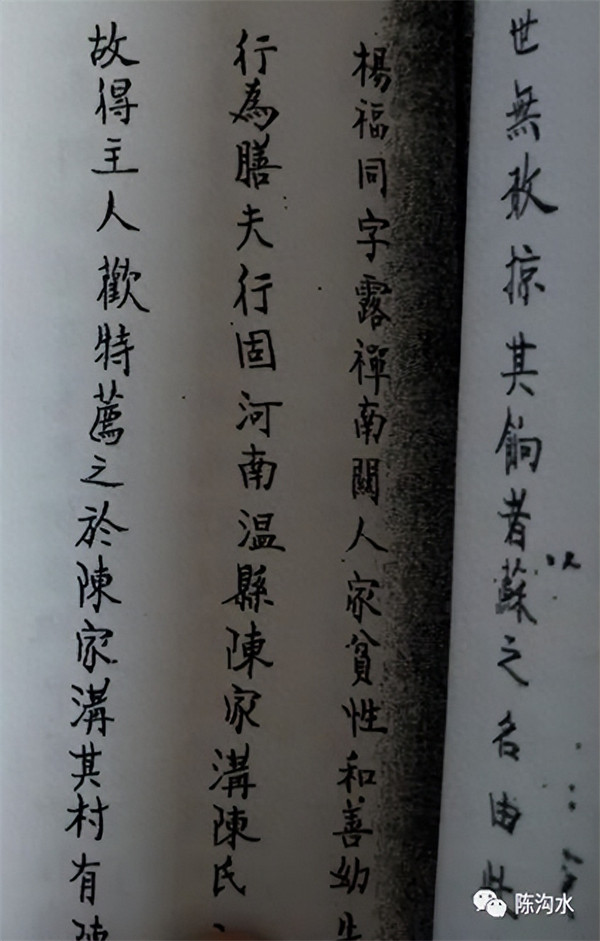 世無敢掠其餉者蘇之名由此
以
楊福同字露禪南關人家貧性和善幼失
行為膳夫行固河南温縣陳家溝陳氏
故得主人歡特薦之於陳家溝其村有陳
陈沟水